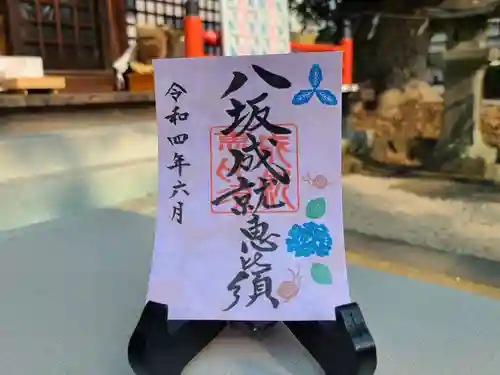 八坂成就恵比須
令和四年六月